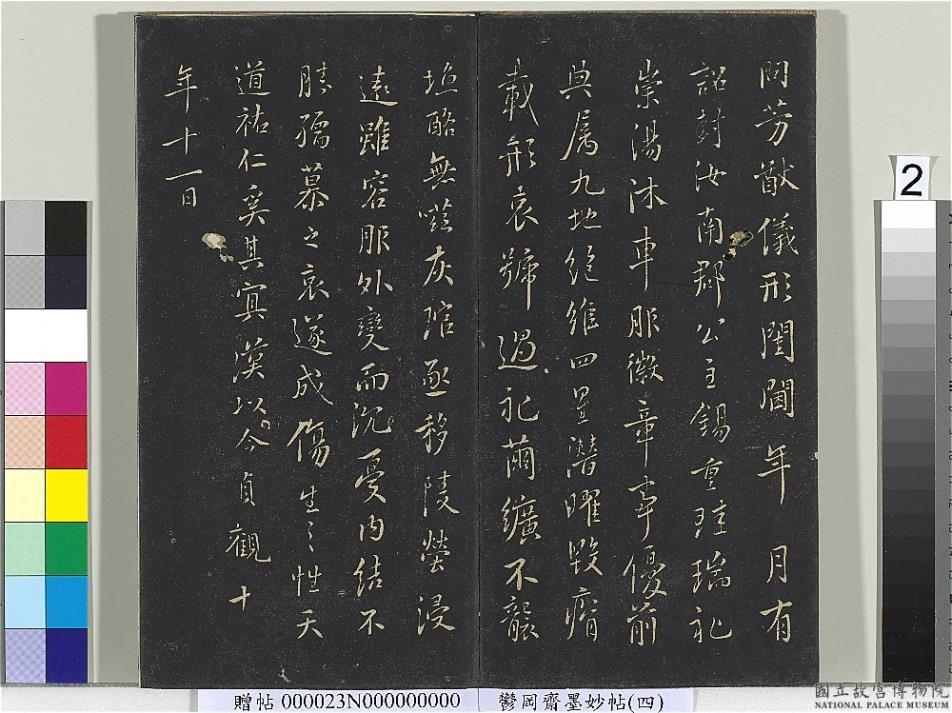 問芳猷儀形閨閫年月有
詔封汝南郡公主錫重珪瑞礼
崇湯沐車服徽章事優前
典属九地絕維四星潛曜毀瘠
載形哀號過礼繭纊不襲
塩酪無嗞灰琯亟移陵塋浸
遠雖容服外變而沉憂內結不
勝孺慕之哀遂成傷生之性天
道祐仁奚其冥漠以今貞觀十
年十一日
2
贈帖 000023N000000000 鬱岡齋墨妙帖(四)
國立故宮博物院
NATIONAL PALACE MUSEUM